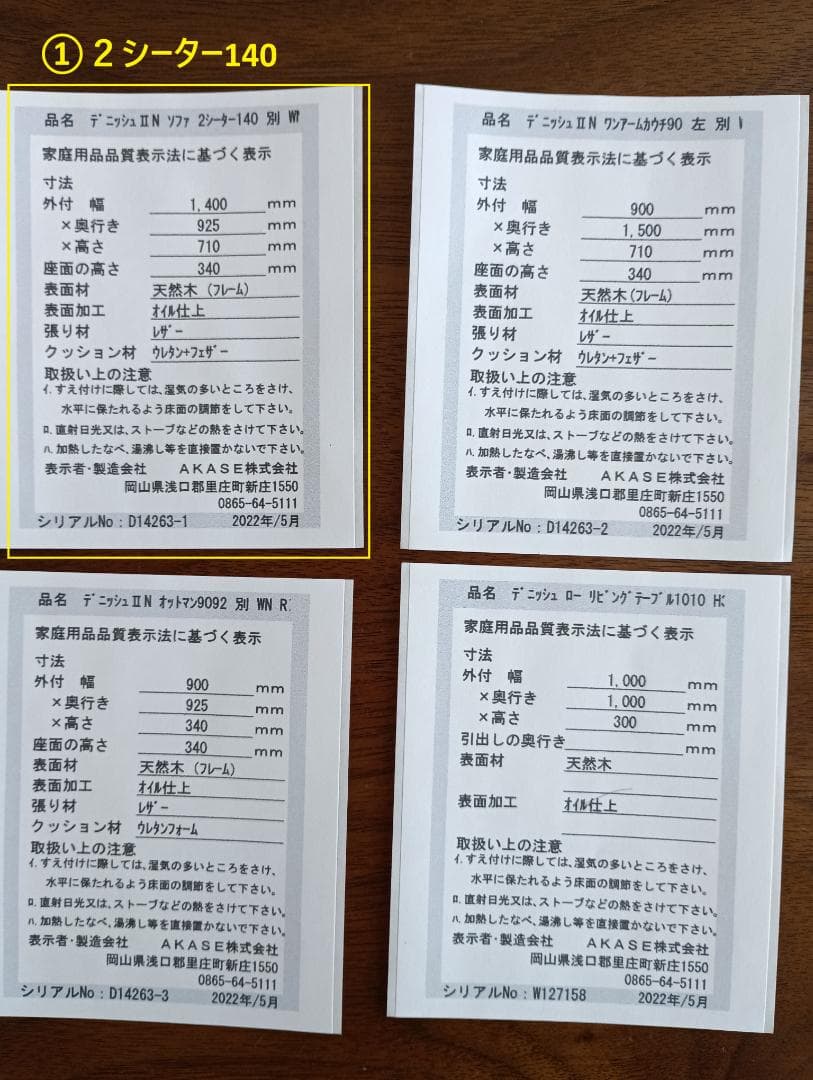 ① ２シーター140
品名 ﾃﾞﾆｯｼｭⅡN ｿﾌｧ 2ｼｰﾀｰ140 別
家庭用品品質表示法に基づく表示
寸法
外付 幅 1,400 mm
×奥行き 925 mm
×高さ 710 mm
座面の高さ 340 mm
表面材 天然木 (ﾌﾚｰﾑ)
表面加工 ｵｲﾙ仕上
張り材 ﾚｻﾞｰ
クッション材 ｳﾚﾀﾝ+ﾌｪｻﾞｰ
取扱い上の注意
ｲ.すえ付けに際しては、湿気の多いところをさけ、
水平に保たれるよう床面の調節をして下さい。
ﾛ.直射日光又は、ストーブなどの熱をさけて下さい。
ﾊ.加熱したなべ、湯沸し等を直接置かないで下さい。
表示者・製造会社 ＡＫＡＳＥ株式会社
岡山県浅口郡里庄町新庄1550
0865-64-5111
シリアルNo：D14263-1 2022年/5月
品名 ﾃﾞﾆｯｼｭⅡN ﾜﾝｱｰﾑｶｳﾁ90 左 別
家庭用品品質表示法に基づく表示
寸法
外付 幅 900 mm
×奥行き 1,500 mm
×高さ 710 mm
座面の高さ 340 mm
表面材 天然木(ﾌﾚｰﾑ)
表面加工 ｵｲﾙ仕上
張り材 ﾚｻﾞｰ
クッション材 ｳﾚﾀﾝ+ﾌｪｻﾞｰ
取扱い上の注意
ｲ.すえ付けに際しては、湿気の多いところをさけ、
水平に保たれるよう床面の調節をして下さい。
ﾛ.直射日光又は、ストーブなどの熱をさけて下さい。
ﾊ.加熱したなべ、湯沸し等を直接置かないで下さい。
表示者・製造会社 ＡＫＡＳＥ株式会社
岡山県浅口郡里庄町新庄1550
0865-64-5111
シリアルNo：D14263-2 2022年/5月
品名 ﾃﾞﾆｯｼｭⅡN ｵｯﾄﾏﾝ9092 別 WN
家庭用品品質表示法に基づく表示
寸法
外付 幅 900 mm
×奥行き 925 mm
×高さ 340 mm
座面の高さ 340 mm
表面材 天然木 (ﾌﾚｰﾑ)
表面加工 ｵｲﾙ仕上
張り材 ﾚｻﾞｰ
クッション材 ｳﾚﾀﾝﾌｫｰﾑ
取扱い上の注意
ｲ.すえ付けに際しては、湿気の多いところをさけ、
水平に保たれるよう床面の調節をして下さい。
ﾛ.直射日光又は、ストーブなどの熱をさけて下さい。
ﾊ.加熱したなべ、湯沸し等を直接置かないで下さい。
表示者・製造会社 ＡＫＡＳＥ株式会社
岡山県浅口郡里庄町新庄1550
0865-64-5111
シリアルNo：D14263-3 2022年/5月
品名 ﾃﾞﾆｯｼｭ ﾛｰ ﾘﾋﾞﾝｸﾞﾃｰﾌﾞﾙ1010
家庭用品品質表示法に基づく表示
寸法
外付 幅 1,000 mm
×奥行き 1,000 mm
×高さ 300 mm
引出しの奥行き mm
表面材 天然木
表面加工 ｵｲﾙ仕上
取扱い上の注意
ｲ.すえ付けに際しては、湿気の多いところをさけ、
水平に保たれるよう床面の調節をして下さい。
ﾛ.直射日光又は、ストーブなどの熱をさけて下さい。
ﾊ.加熱したなべ、湯沸し等を直接置かないで下さい。
表示者・製造会社 ＡＫＡＳＥ株式会社
岡山県浅口郡里庄町新庄1550
0865-64-5111
シリアルNo：W127158 2022年/5月